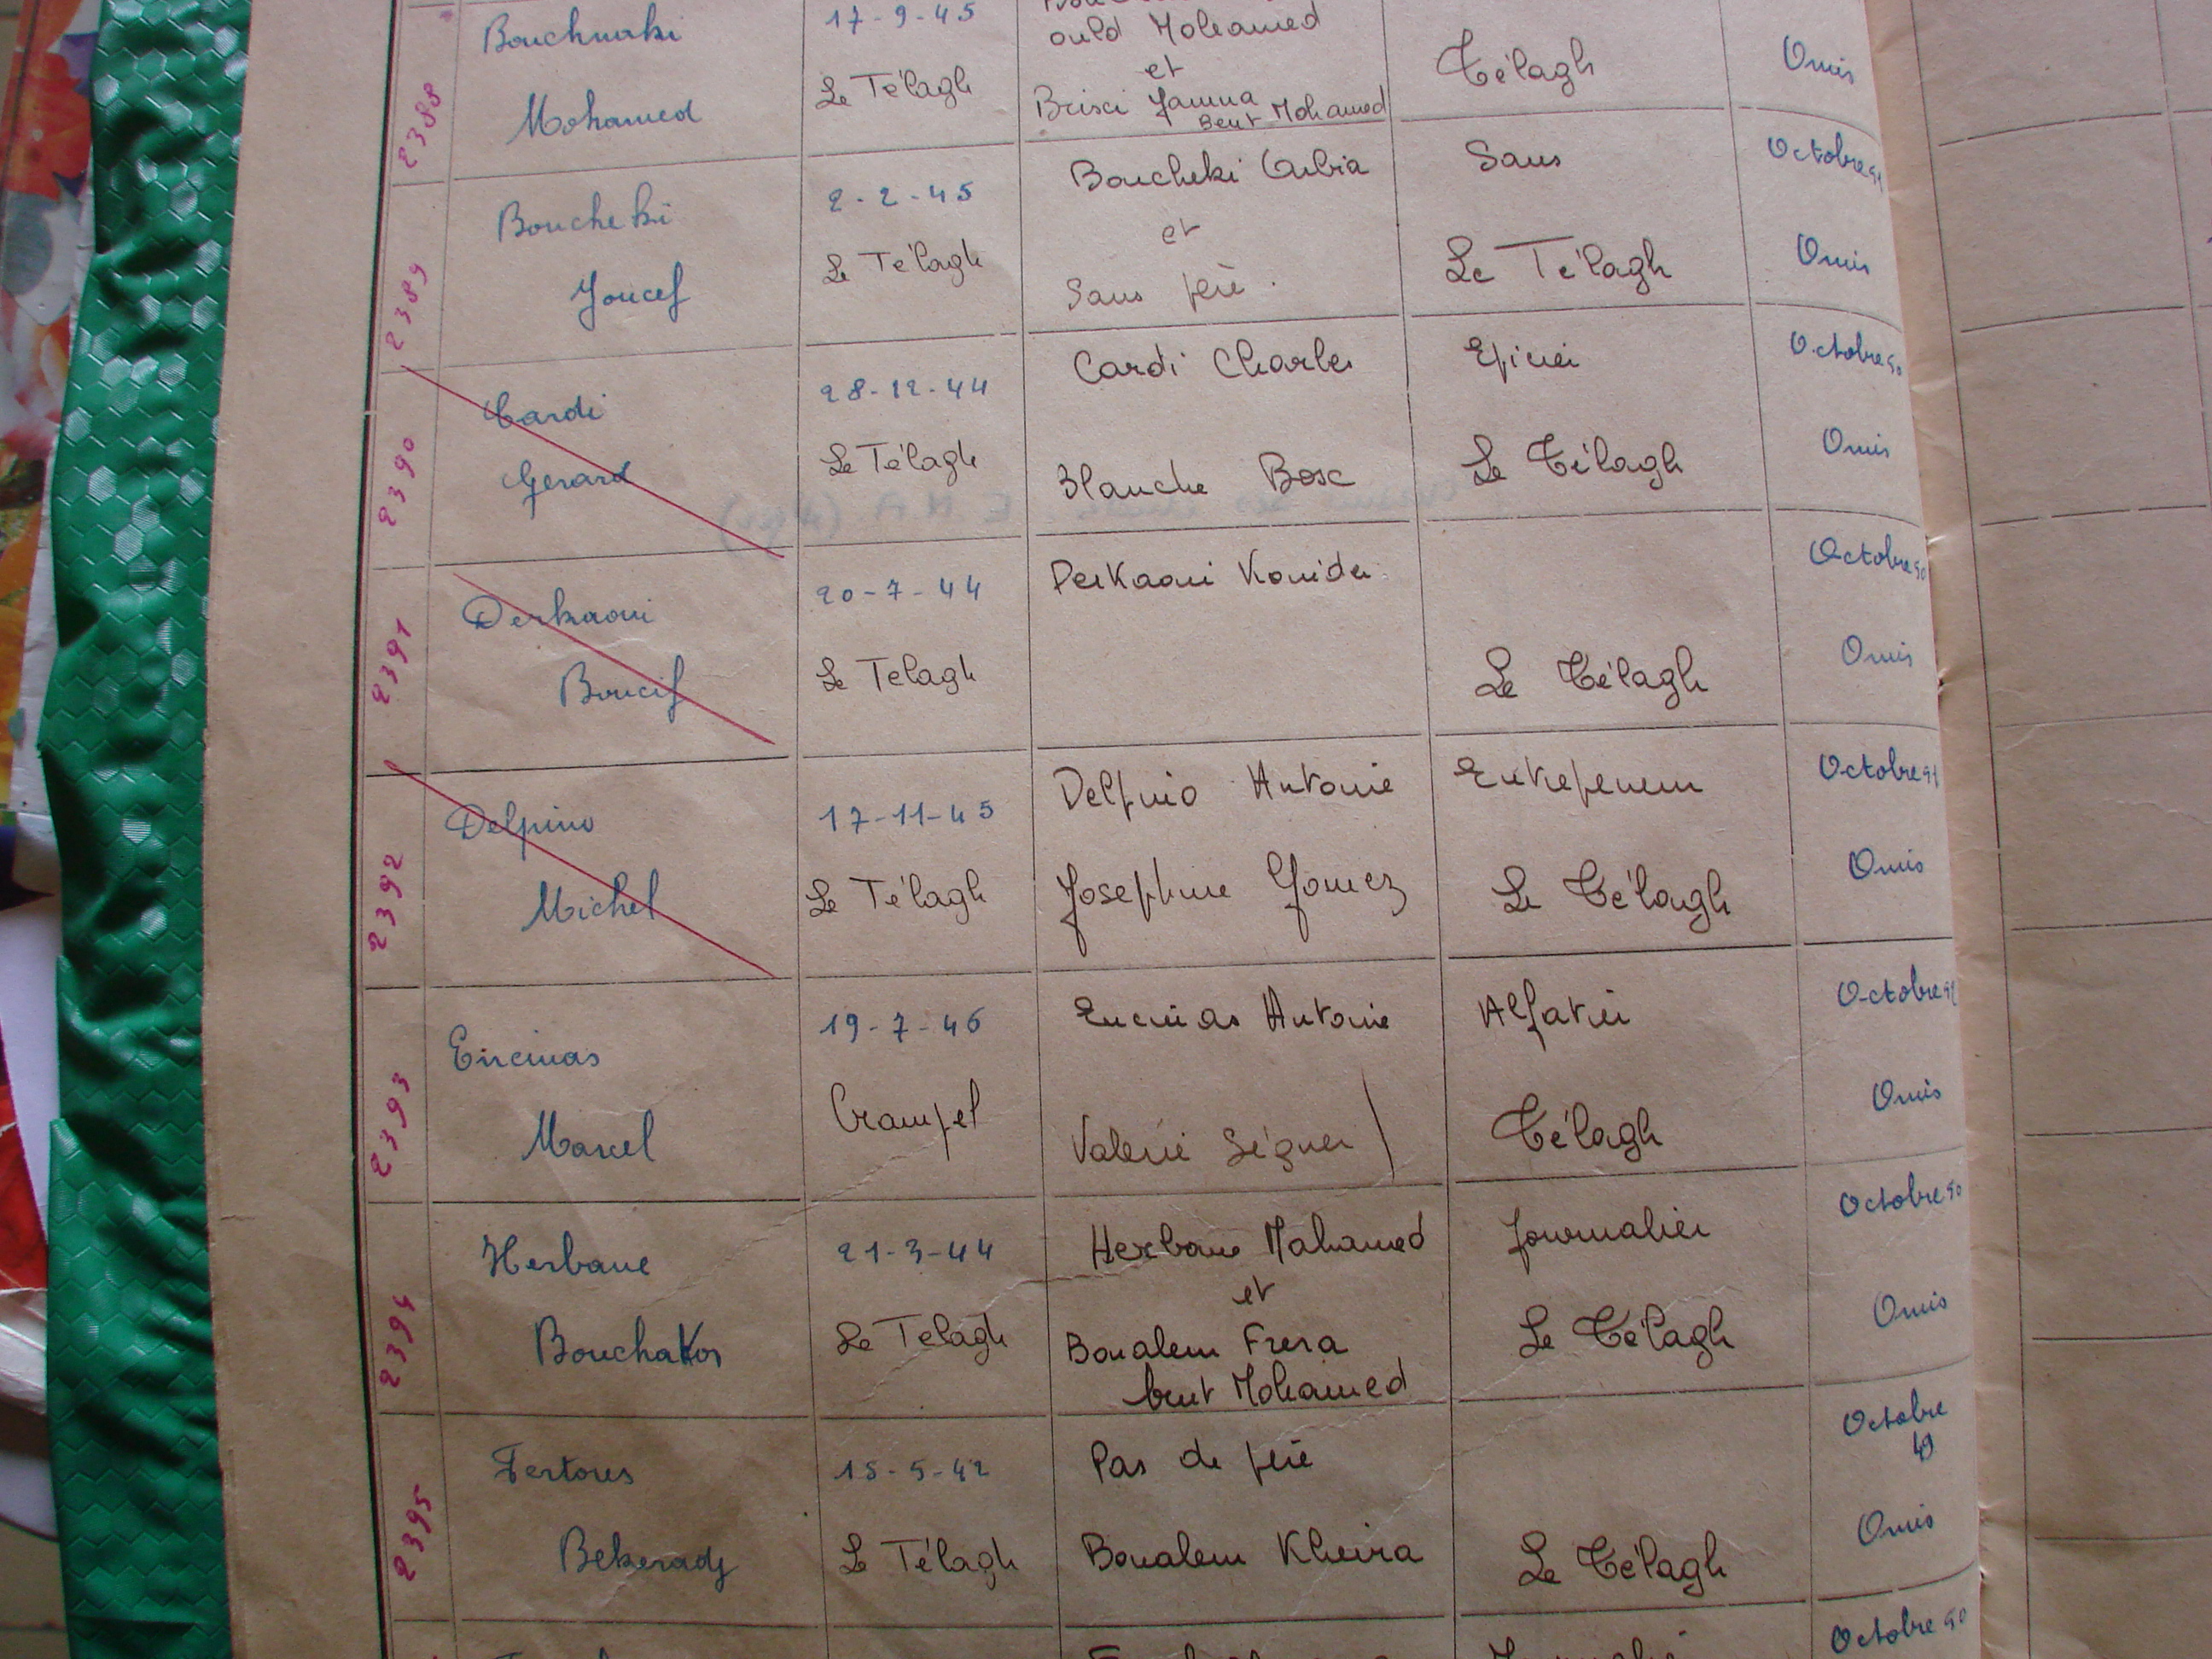 2388
Bouchnaki
Mohamed
17-9-45
Le Télagh
ould Mohamed
et
Brisci Yamna
Bent Mohamed
Télagh
Omis
2389
Boucheki
Youcef
2-2-45
Le Télagh
Boucheki Arbia
et
Sans père.
Sans
Le Télagh
Octobre 51
Omis
2390
Cardi
Gerard
28-12-44
Le Télagh
Cardi Charles
Blanche Bosc
Epicier
Le Télagh
Octobre 50
Omis
2391
Derkaoui
Boucif
20-7-44
Le Telagh
Derkaoui Kouider
Le Télagh
Octobre 50
Omis
2392
Delpino
Michel
17-11-45
Le Télagh
Delpino Antoine
Josephine Gomez
Entrepeneur
Le Télagh
Octobre 51
Omis
2393
Encinas
Marcel
19-7-46
Crampel
Encinas Antoine
Valerie Séguer
Alfatier
Télagh
Octobre
Omis
2394
Herbane
Bouchakor
21-3-44
Le Telagh
Herbane Mohamed
et
Boualem Frera
bent Mohamed
Journalier
Le Télagh
Octobre 50
Omis
2395
Fertous
Bekerady
15-5-42
Le Télagh
Pas de père
Boualem Kheira
Le Télagh
Octobre
49
Omis
Octobre 50